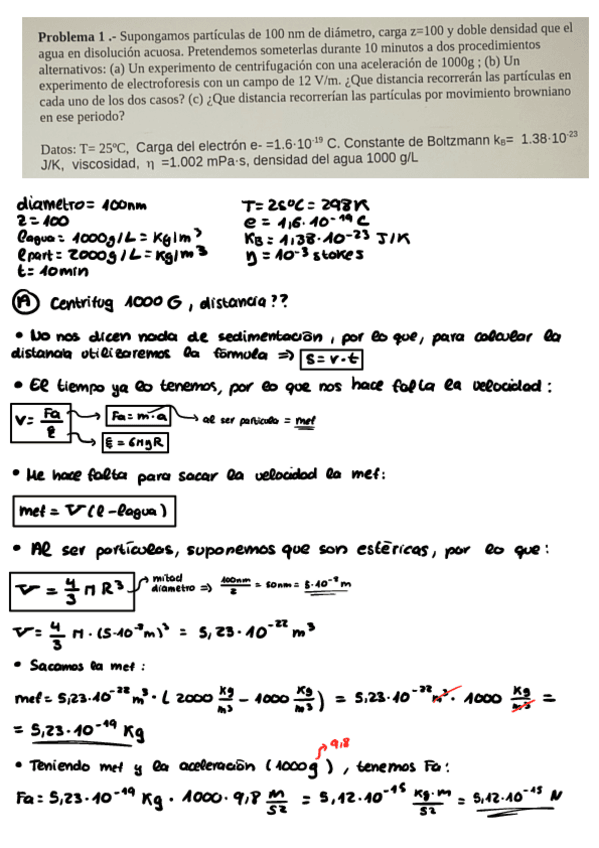 Problema 1 .- Supongamos partículas de 100 nm de diámetro, carga z=100 y doble densidad que el
agua en disolución acuosa. Pretendemos someterlas durante 10 minutos a dos procedimientos
alternativos: (a) Un experimento de centrifugación con una aceleración de 1000g ; (b) Un
experimento de electroforesis con un campo de 12 V/m. ¿Que distancia recorrerán las partículas en
cada uno de los dos casos? (c) ¿Que distancia recorrerían las partículas por movimiento browniano
en ese periodo?
Datos: T= 25ºC, Carga del electrón e- =1.6·10⁻¹⁹ C. Constante de Boltzmann k_B= 1.38·10⁻²³
J/K, viscosidad, η =1.002 mPa·s, densidad del agua 1000 g/L
diametro= 100nm
z= 100
ρagua= 1000g/L= Kg/m³
ρpart= 2000g/L= Kg/m³
t= 10min
T= 25ºC= 298K
e= 1,6·10⁻¹⁹ C
K_B= 1,38·10⁻²³ J/K
η= 10⁻³ stokes
A Centrifug 1000 G, distancia??
• No nos dicen nada de sedimentación, por lo que, para calcular la
distancia utilizaremos la fórmula => s=v·t
• El tiempo ya lo tenemos, por lo que nos hace falta la velocidad:
v= Fa/ξ Fa=m·a al ser partícula = mef
ξ=6πηR
• Me hace falta para sacar la velocidad la mef:
mef = V(ρ-ρagua)
• Al ser partículas, suponemos que son esféricas, por lo que:
V= 4/3 π R³ mitad diametro => 100nm/2 = 50nm= 5·10⁻⁸ m
V= 4/3 π·(5·10⁻⁸m)³ = 5,23·10⁻²² m³
• Sacamos la mef:
mef= 5,23·10⁻²² m³·(2000 Kg/m³ - 1000 Kg/m³) = 5,23·10⁻²² m³· 1000 Kg/m³ =
= 5,23·10⁻¹⁹ Kg
9,8
• Teniendo mef y la aceleración (1000g), tenemos Fa:
Fa= 5,23·10⁻¹⁹ Kg · 1000·9,8 m/s2 = 5,12·10⁻¹⁵ Kg·m/s2 = 5,12·10⁻¹⁵ N